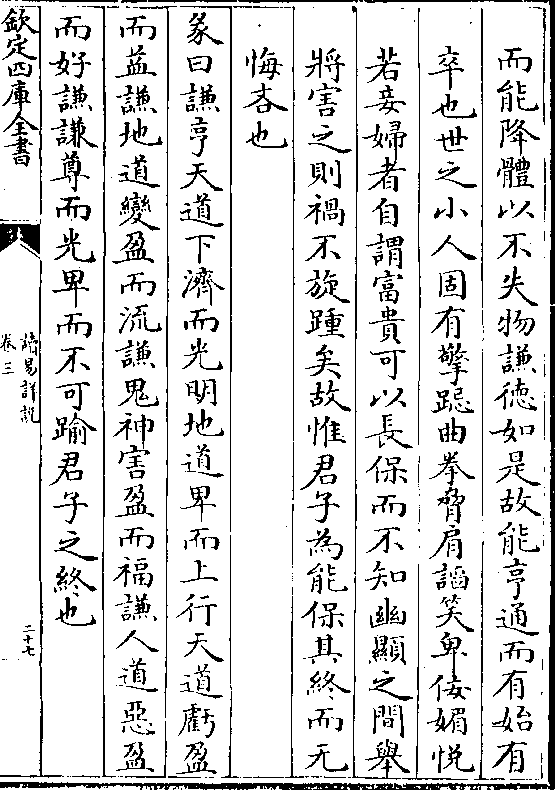 而能降體以不失物謙徳如是故能亨通而有始有
卒也世之小人固有擎跽曲拳脅肩謟笑卑佞媚悦
若妾婦者自謂富貴可以長保而不知幽顯之間舉
將害之則禍不旋踵矣故惟君子為能保其終而无
悔吝也
彖曰謙亨天道下濟而光明地道卑而上行天道虧盈
而益謙地道變盈而流謙鬼神害盈而福謙人道惡盈
而好謙謙尊而光卑而不可踰君子之終也
欽定四庫全書
讀易詳說
卷三
二十七